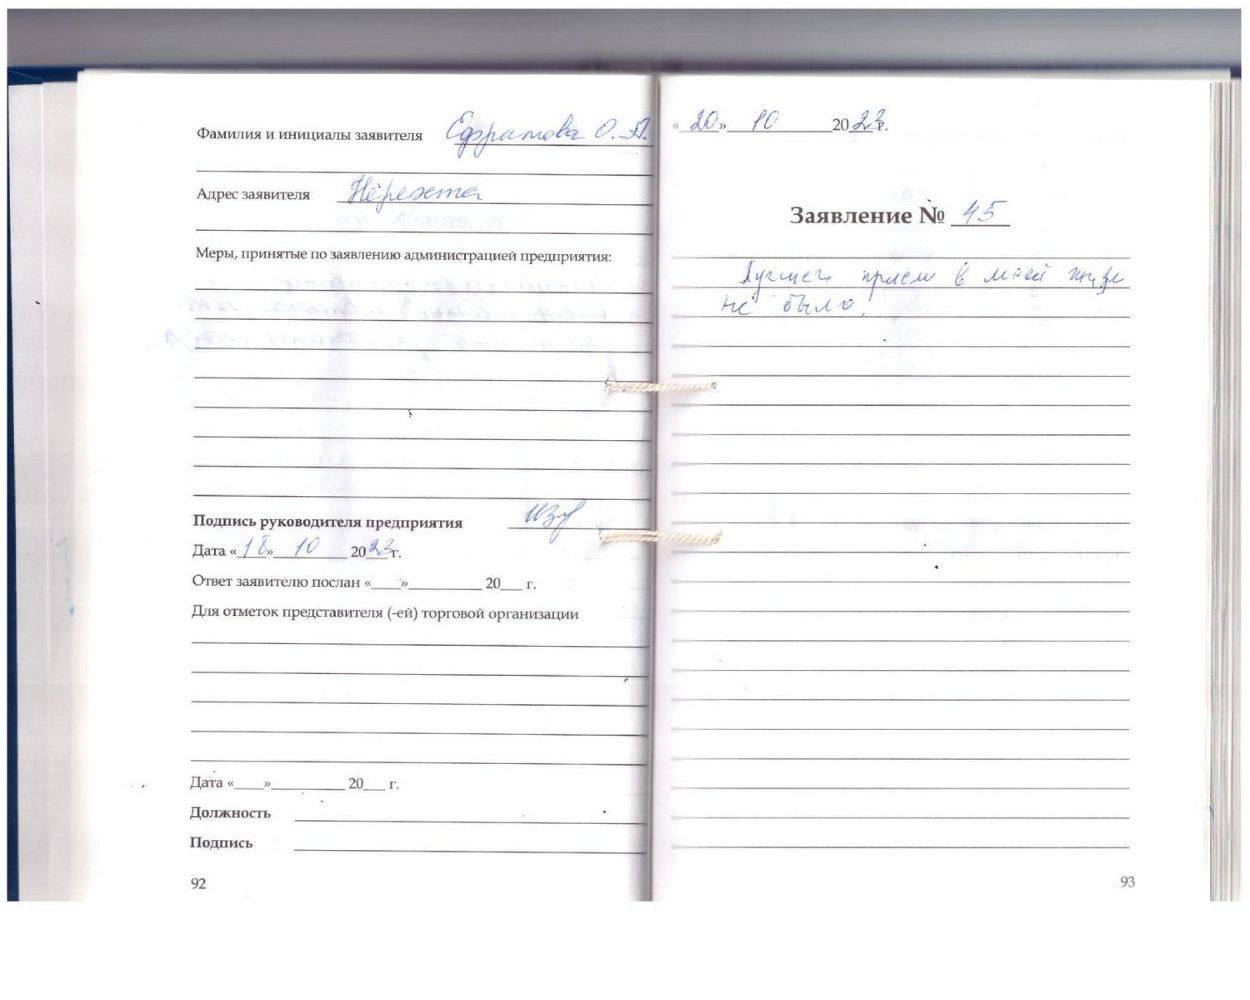 Фамилия и инициалы заявителя Ефратова О. А.
Адрес заявителя Нерехта
Меры, принятые по заявлению администрацией предприятия:
Подпись руководителя предприятия
Дата «18» 10 2023 г.
Ответ заявителю послан «____»__________ 20___ г.
Для отметок представителя (-ей) торговой организации
Дата «____»__________ 20___ г.
Должность
Подпись
92
«20» 10 2023 г.
Заявление № 45
Лучшего прием в моей жизни
не было.
93